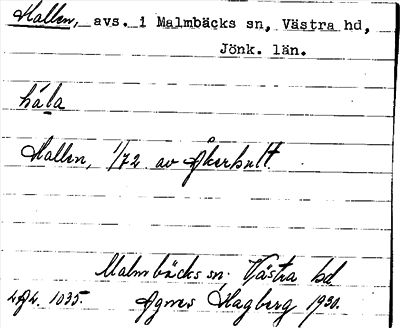 Hallen, avs. i Malmbäcks sn, Västra hd,
Jönk. län.
håla
Hallen, 1/72 av Åkerhult.
Malmbäcks sn. Västra hd
Agnes Hagberg 1930.
1035